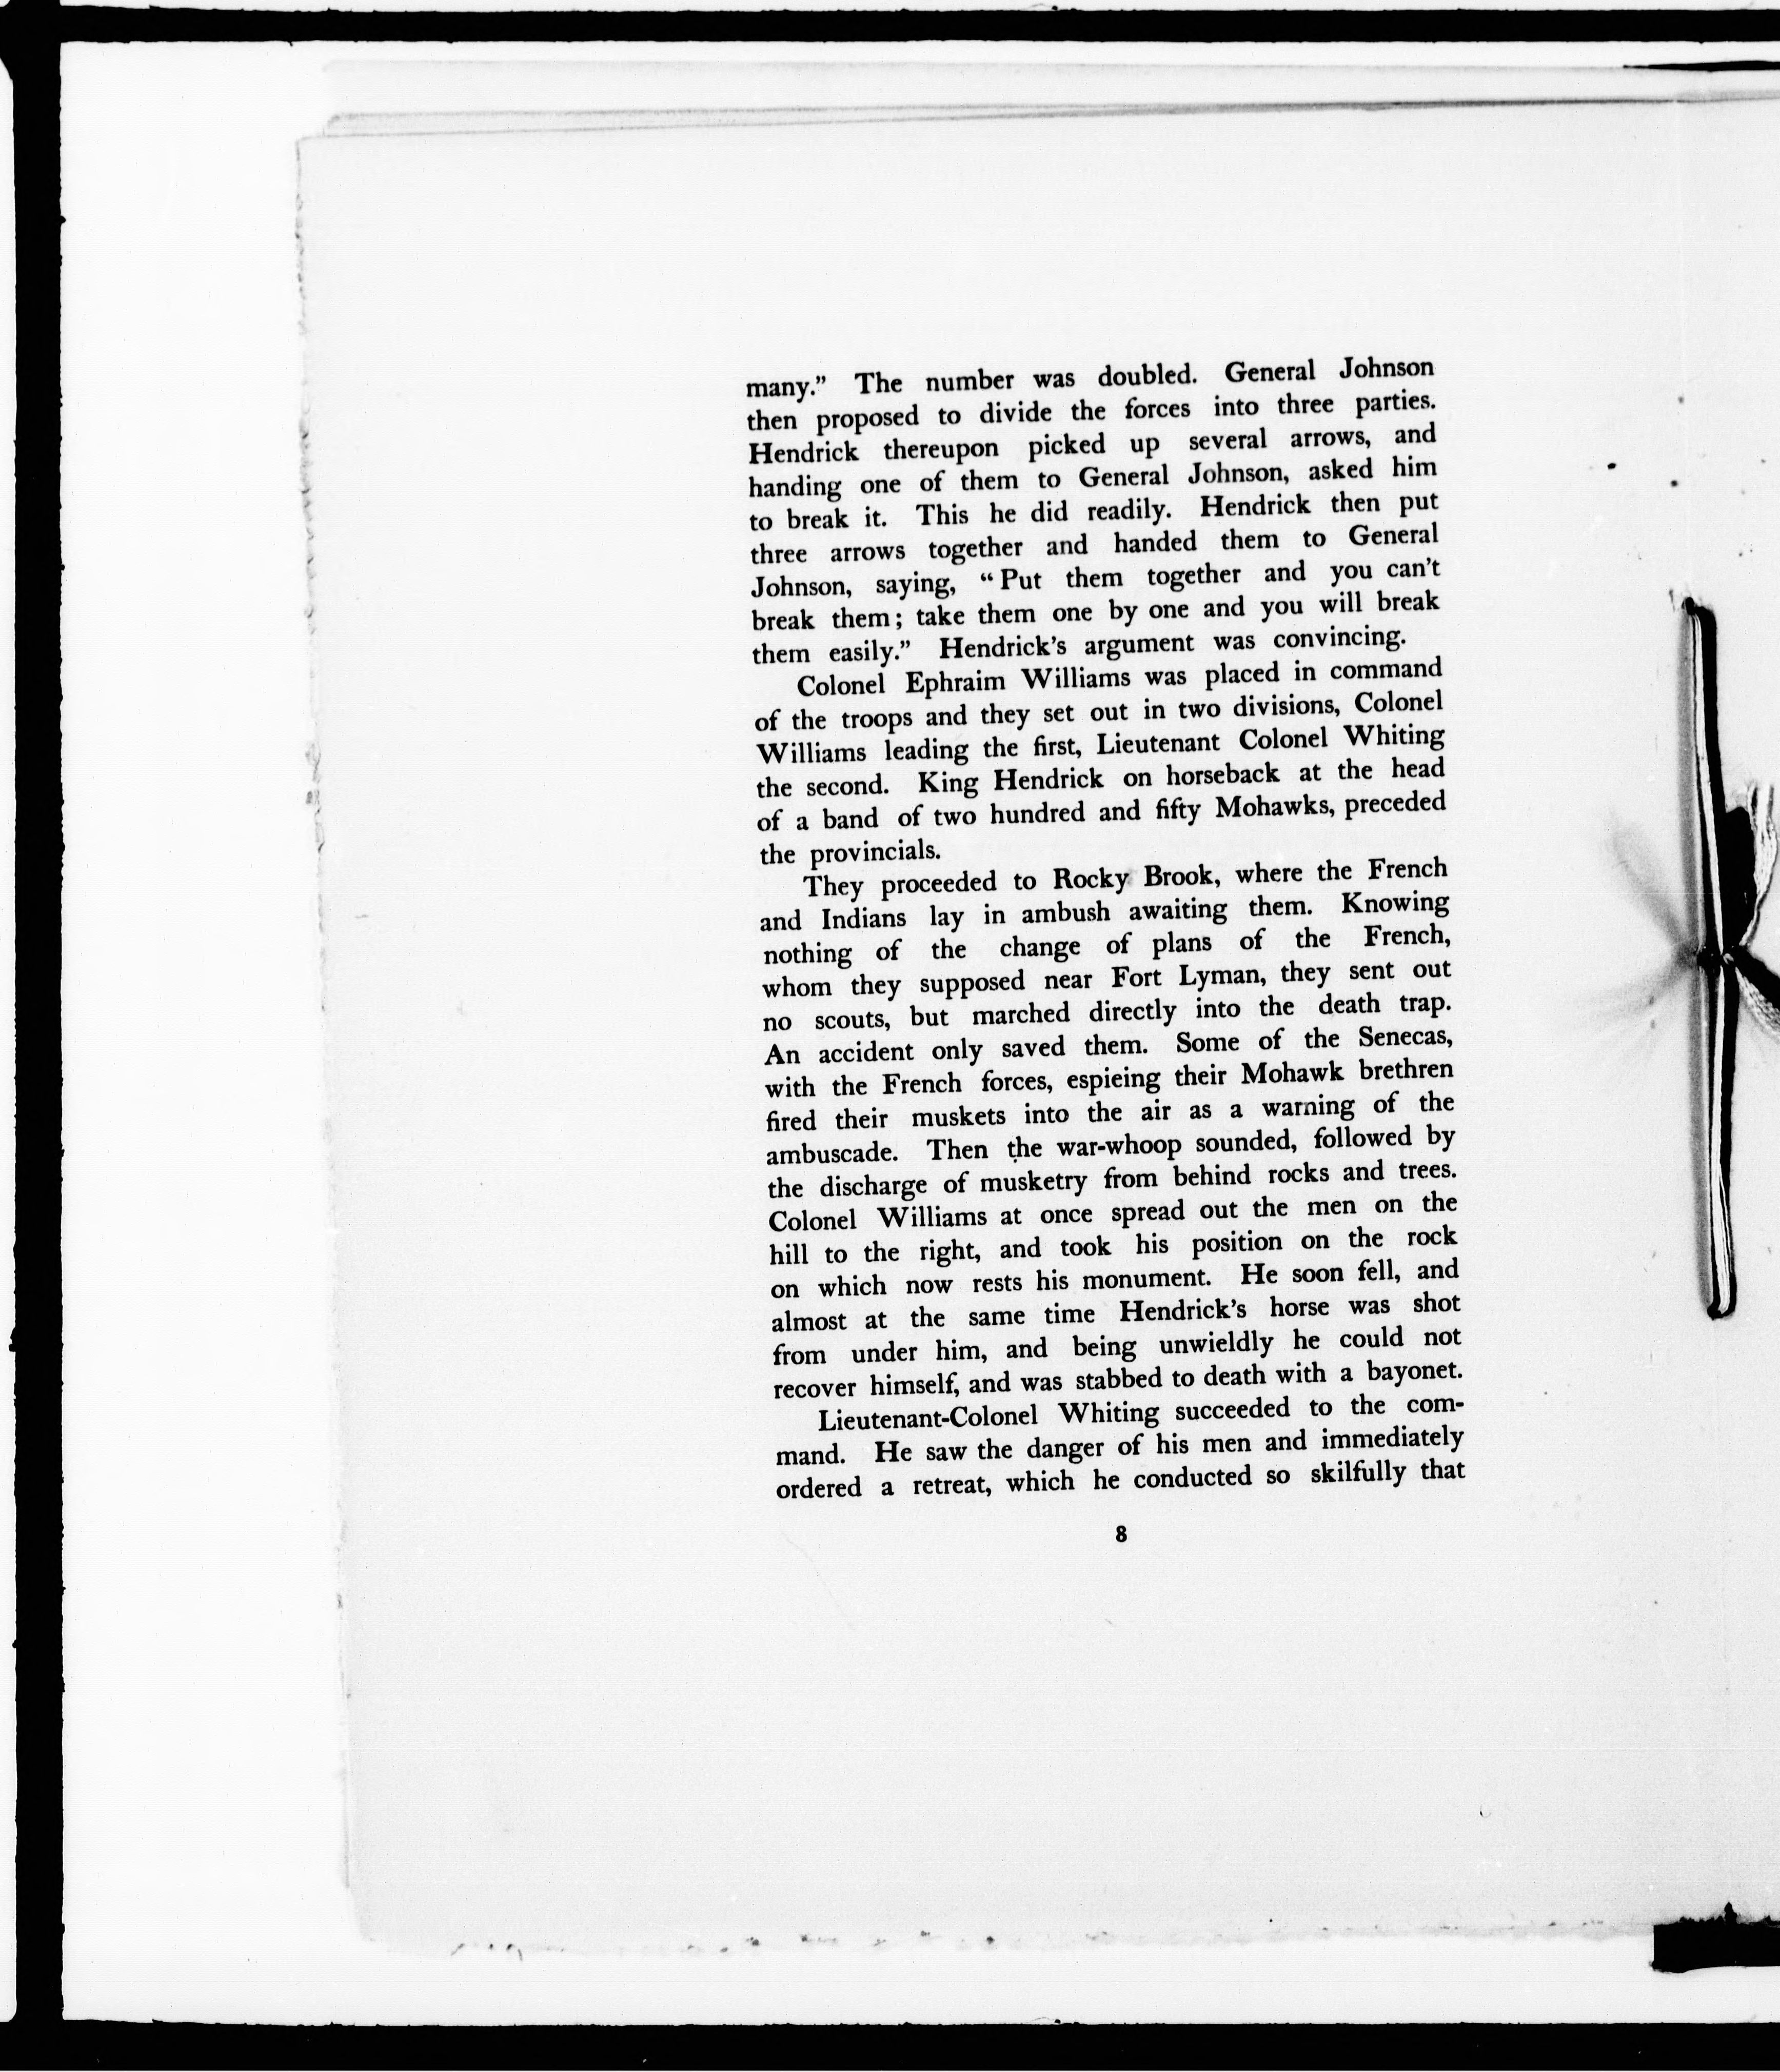 many.” The number was doubled. General Johnson
then proposed to divide the forces into three parties.
Hendrick thereupon picked up several arrows, and
handing one of them to General Johnson, asked him
to break it. This he did readily. Hendrick then put
three arrows together and handed them to General
Johnson, saying, “Put them together and you can’t
break them; take them one by one and you will break
them easily.” Hendrick’s argument was convincing.
Colonel Ephraim Williams was placed in command
of the troops and they set out in two divisions, Colonel
Williams leading the first, Lieutenant Colonel Whiting
the second. King Hendrick on horseback at the head
of a band of two hundred and fifty Mohawks, preceded
the provincials.
They proceeded to Rocky Brook, where the French
and Indians lay in ambush awaiting them. Knowing
nothing of the change of plans of the French,
whom they supposed near Fort Lyman, they sent out
no scouts, but marched directly into the death trap.
An accident only saved them. Some of the Senecas,
with the French forces, espieing their Mohawk brethren
fired their muskets into the air as a warning of the
ambuscade. Then the war-whoop sounded, followed by
the discharge of musketry from behind rocks and trees.
Colonel Williams at once spread out the men on the
hill to the right, and took his position on the rock
on which now rests his monument. He soon fell, and
almost at the same time Hendrick’s horse was shot
from under him, and being unwieldly he could not
recover himself, and was stabbed to death with a bayonet.
Lieutenant-Colonel Whiting succeeded to the com-
mand. He saw the danger of his men and immediately
ordered a retreat, which he conducted so skilfully that
8